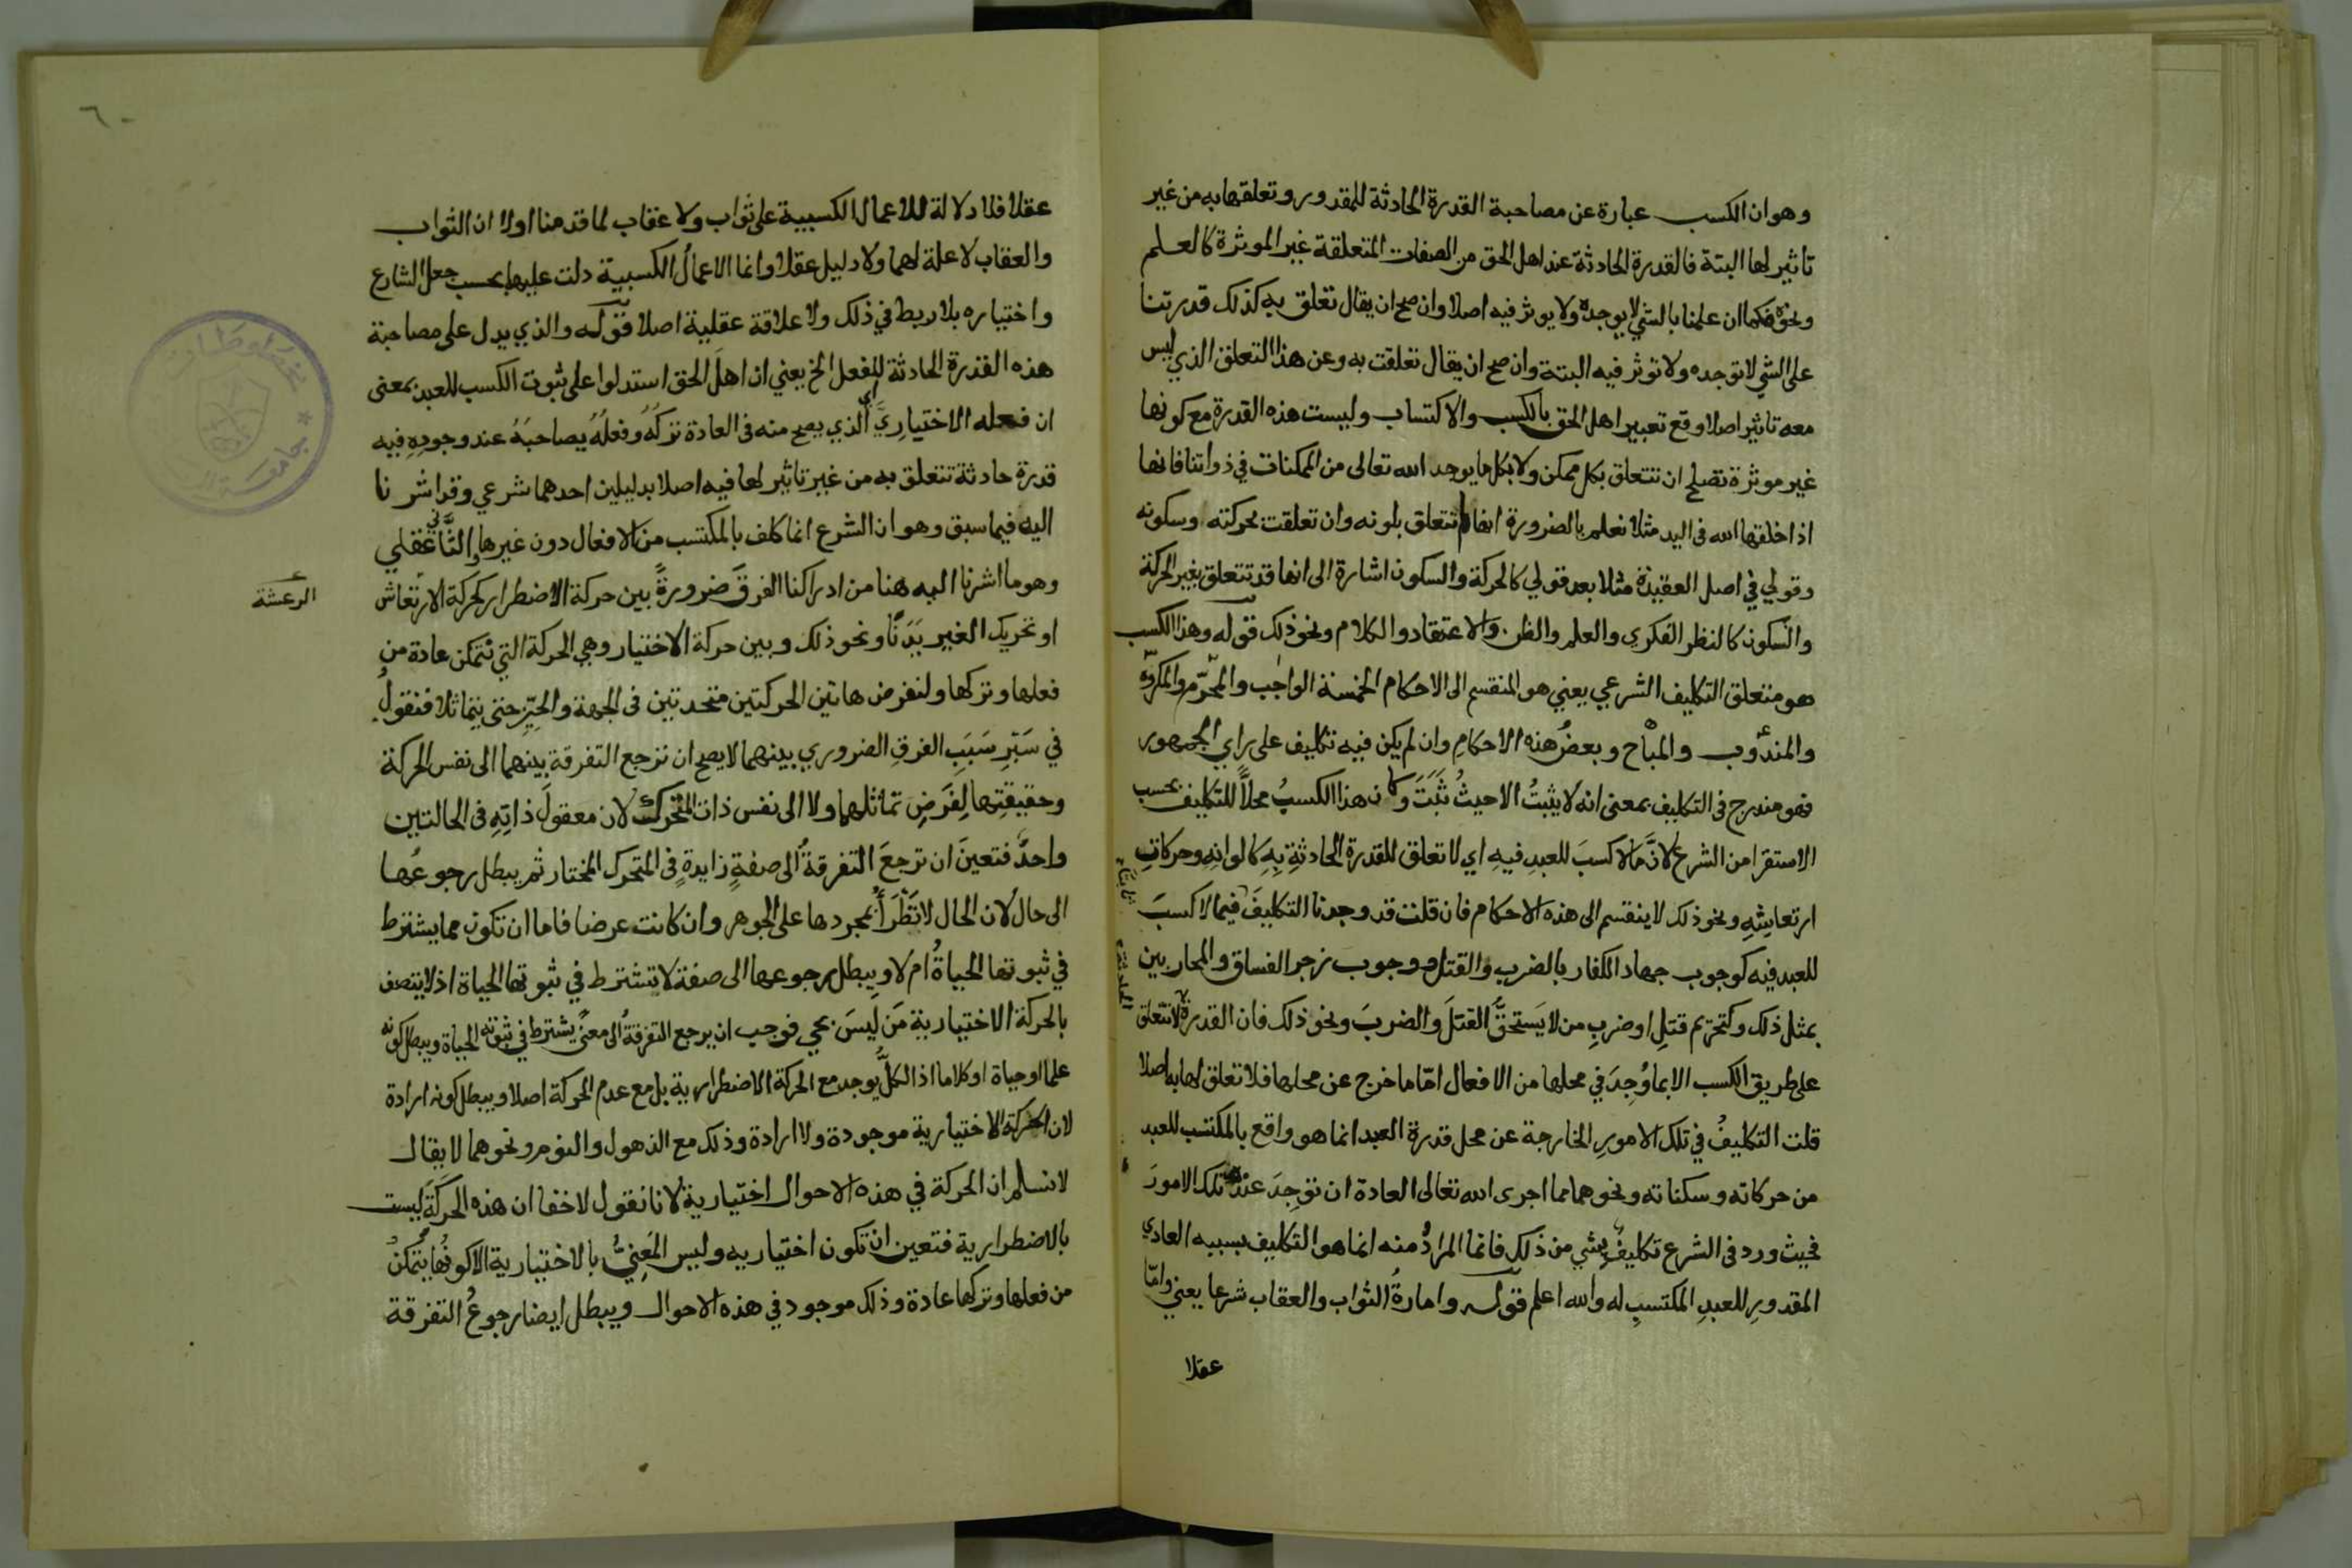 وهو ان الكسب عبارة عن مصاحبة القدرة الحادثة للمقدور وتعلقها به من غير
تاثير لها البتة فالقدرة الحادثة عند اهل الحق من الصفات المتعلقة غير الموثرة كالعلم
ونحوه فكما ان علمنا بالشي لا يوجده ولا يوثر فيه اصلا وان صح ان يقال تعلق به كذلك قدرتنا
على الشي لا توجده ولا توثر فيه البتة وان صح ان يقال تعلقت به وعن هذا التعلق الذي ليس
معه تاثير اصلا وقع تعبير اهل الحق بالكسب والاكتساب وليست هذه القدرة مع كونها
غير موثرة تصلح ان تتعلق بكل ممكن ولا بكل ما يوجد الله تعالى من الممكنات في ذواتنا فانها
اذا خلقها الله في اليد مثلا نعلم بالضرورة انها لم تتعلق بلونه وان تعلقت بحركته وسكونه
وقولي في اصل العقيدة مثلا بعد قولي كالحركة والسكون اشارة الى انها قد تتعلق بغير الحركة
والسكون كالنظر الفكري والعلم والظن والاعتقاد والكلام ونحو ذلك قوله وهذا الكسب
هو متعلق التكليف الشرعي يعني هو المنقسم الى الاحكام الخمسة الواجب والمحرّم والمكروه
والمندوب والمباح وبعضُ هذه الاحكامِ وان لم يكن فيه تكليف على راي الجمهور
فهو مندرج في التكليف بمعنى انه لا يثبتُ الا حيثُ ثَبَتَ وكان هذا الكسبُ محلاًّ للتكليف بحسب
الاستقرا من الشرع لانَّ ما لا كسبَ للعبدِ فيهِ اي لا تعلق للقدرة الحادثةِ بِهِ كالوانِهِ وحركاتِ
ارتعاشِهِ ونحو ذلك لا ينقسم الى هذه الاحكام فان قلت قد وجدنا التكليفَ فيما لا كسبَ
للعبد فيه كوجوب جهاد الكفار بالضرب والقتل ووجوب زجر الفساق والمحاربين
بمثل ذلك وكتحريم قتلِ او ضربِ من لا يَستحقُّ القتلَ والضربَ ونحو ذلك فان القدرة لا تتعلق
على طريق الكسب الا بما وُجِدَ في محلها من الافعال امّا ما خرج عن محلها فلا تعلق لها به اصلا
قلت التكليفُ في تلك الامورِ الخارجة عن محل قدرة العبد انما هو واقع بالمكتسب للعبد
من حركاته وسكناته ونحوهما مما اجرى الله تعالى العادة ان توجِدَ عنده تلك الامورَ
فحيث ورد في الشرع تكليفٌ بشي من ذلك فانما المرادُ منه انما هو التكليف بسببه العادي
المقدورِ للعبدِ المكتسبِ له والله اعلم قوله وامارةُ الثواب والعقاب شرعا يعني وامّا
عقلا
عقلا فلا دلالة للاعمال الكسبية على ثواب ولا عقاب لما قدمنا اولا ان الثواب
والعقاب لا علة لهما ولا دليل عقلا وانما الاعمالُ الكسبية دلت عليها بحسب جعل الشارع
واختياره بلا ربط في ذلك ولا علاقة عقلية اصلا قوله والذي يدل على مصاحبة
هذه القدرة الحادثة للفعل الخ يعني ان اهلَ الحق استدلوا على ثبوت الكسب للعبد بمعنى
ان فعله الاختياريَّ اي الذي يصح منه في العادة تركُهُ وفعلُهُ يصاحبَهُ عند وجودِهِ فيه
قدرة حادثة تتعلق به من غير تاثير لها فيه اصلا بدليلين احدهما شرعي وقد اشرنا
اليه فيما سبق وهو ان الشرع انما كلف بالمكتسب من الافعال دون غيرها والثاني عقلي
وهو ما اشرنا اليه هنا من ادراكنا الفرقَ ضرورةً بين حركة الاضطرار كحركة الارتعاش
الرعشة
او تحريك الغير يَدَنَا ونحو ذلك وبين حركة الاختيار وهي الحركة التي نتمكن عادة من
فعلها وتركها ولنفرض هاتين الحركتين متحدتين في الجهة والحيّزِ حتى يتماثلا فنقولُ
في سَبْرِ سَبَبِ الفرقِ الضروري بينهما لا يصح ان ترجع التفرقة بينهما الى نفس الحركة
وحقيقتِها لِفَرَضِ تماثلهما ولا الى نفس ذات المتحرك لان معقولَ ذاتِهِ في الحالتين
واحدٌ فتعينَ ان ترجعَ التفرقةُ الى صفةٍ زايدةٍ في المتحرك المختار ثم يبطل رجوعُها
الى حال لان الحال لا تَطْرَأُ بمجردها على الجوهر وان كانت عرضا فاما ان تكون مما يشترط
في ثبوتها الحياةُ ام لا ويبطل رجوعها الى صفة لا تشترط في ثبوتها الحياة اذ لا يتصف
بالحركة الاختيارية مَن ليسَ بحي فوجب ان يرجع التفرقةُ الى معنىً يشترط في ثبوته الحياة ويبطل كونه
علما او حياة او كلاما اذ الكلُّ يوجد مع الحركة الاضطرارية بل مع عدم الحركة اصلا ويبطل كونه ارادة
لان الحركة الاختيارية موجودة ولا ارادة وذلك مع الذهول والنوم ونحوهما لا يقال
لا نسلم ان الحركة في هذه الاحوال اختيارية لانا نقول لا خفا ان هذه الحركَةَ ليست
بالاضطرارية فتعين ان تكون اختياريه وليس المَعنِيُّ بالاختيارية الا كونُها يتمكنُ
من فعلها وتركها عادة وذلك موجود في هذه الاحوال ويبطل ايضا رجوعُ التفرقة